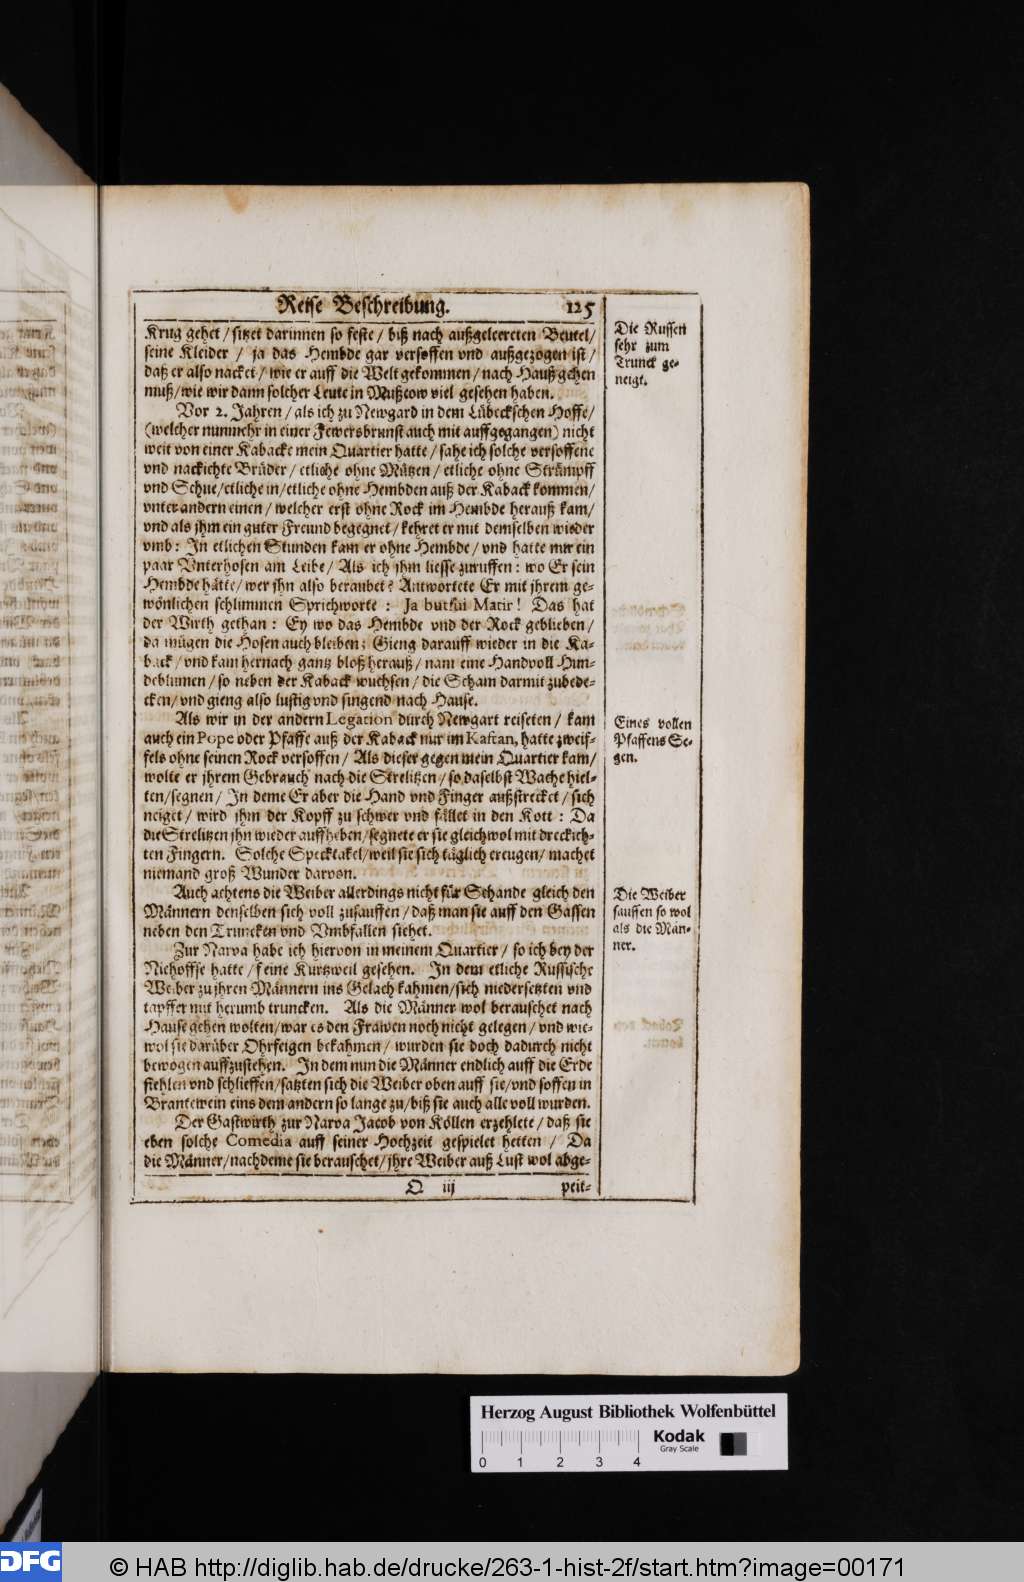 Reise Beschreibung. 125
Krug gehet / sitzet darinnen so feste / biß nach außgeleereten Beutel /
seine Kleider / ja das Hembde gar versoffen vnd außgezogen ist /
daß er also nacket / wie er auff die Welt gekommen / nach Hauß gehen
muß / wie wir dann solcher Leute in Mußcow viel gesehen haben.
Vor 2. Jahren / als ich zu Newgard in dem Lübeckschen Hoffe /
(welcher nunmehr in einer Fewersbrunst auch mit auffgegangen) nicht
weit von einer Kabacke mein Quartier hatte / sahe ich solche versoffene
vnd nackichte Brüder / etliche ohne Mützen / etliche ohne Strümpff
vnd Schue / etliche in / etliche ohne Hembden auß der Kaback kommen /
vnter andern einen / welcher erst ohne Rock im Hembde herauß kam /
vnd als jhm ein guter Freund begegnet / kehret er mit demselben wieder
vmb: In etlichen Stunden kam er ohne Hembde / vnd hatte nur ein
paar Vnterhosen am Leibe / Als ich jhm liesse zuruffen: wo Er sein
Hembde hätte / wer jhn also beraubet? Antwortete Er mit jhrem ge-
wönlichen schlimmen Sprichworte: Ja butfui Matir! Das hat
der Wirth gethan: Ey wo das Hembde vnd der Rock geblieben /
da mügen die Hosen auch bleiben; Gieng darauff wieder in die Ka-
back / vnd kam hernach gantz bloß herauß / nam eine Handvoll Hun-
deblumen / so neben der Kaback wuchsen / die Scham darmit zubede-
cken / vnd gieng also lustig vnd singend nach Hause.
Als wir in der andern Legation durch Newgart reiseten / kam
auch ein Pope oder Pfaffe auß der Kaback nur im Kaftan, hatte zweif-
fels ohne seinen Rock versoffen / Als dieser gegen mein Quartier kam /
wolte er jhrem Gebrauch nach die Strelitzen / so daselbst Wache hiel-
ten / segnen / In deme Er aber die Hand vnd Finger außstrecket / sich
neiget / wird jhm der Kopff zu schwer vnd fället in den Kott: Da
die Strelitzen jhn wieder auffheben / segnete er sie gleichwol mit dreckich-
ten Fingern. Solche Specktakel / weil sie sich täglich ereugen / machet
niemand groß Wunder darvon.
Auch achtens die Weiber allerdings nicht für Schande gleich den
Männern denselben sich voll zusauffen / daß man sie auff den Gassen
neben den Truncken vnd Vmbfallen siehet.
Zur Narva habe ich hiervon in meinem Quartier / so ich bey der
Niehoffse hatte / feine Kurtzweil gesehen. In dem etliche Russische
Weiber zu jhren Männern ins Gelach kahmen / sich niedersetzten vnd
tapffer mit herumb truncken. Als die Männer wol berauschet nach
Hause gehen wolten / war es den Frawen noch nicht gelegen / vnd wie-
wol sie darüber Ohrfeigen bekahmen / wurden sie doch dadurch nicht
bewogen auffzustehen. In dem nun die Männer endlich auff die Erde
fiehlen vnd schlieffen / satzten sich die Weiber oben auff sie / vnd soffen in
Brantewein eins dem andern so lange zu / biß sie auch alle voll wurden.
Der Gastwirth zur Narva Jacob von Köllen erzehlete / daß sie
eben solche Comedia auff seiner Hochzeit gespielet hetten / Da
die Männer / nachdeme sie berauschet / jhre Weiber auß Lust wol abge-
Q iij peit-
Die Russen
sehr zum
Trunck ge-
neigt.
Eines vollen
Pfaffens Se-
gen.
Die Weiber
sauffen so wol
als die Män-
ner.
Herzog August Bibliothek Wolfenbüttel
Kodak
Gray Scale
0 1 2 3 4
DFG © HAB http://diglib.hab.de/drucke/263-1-hist-2f/start.htm?image=00171